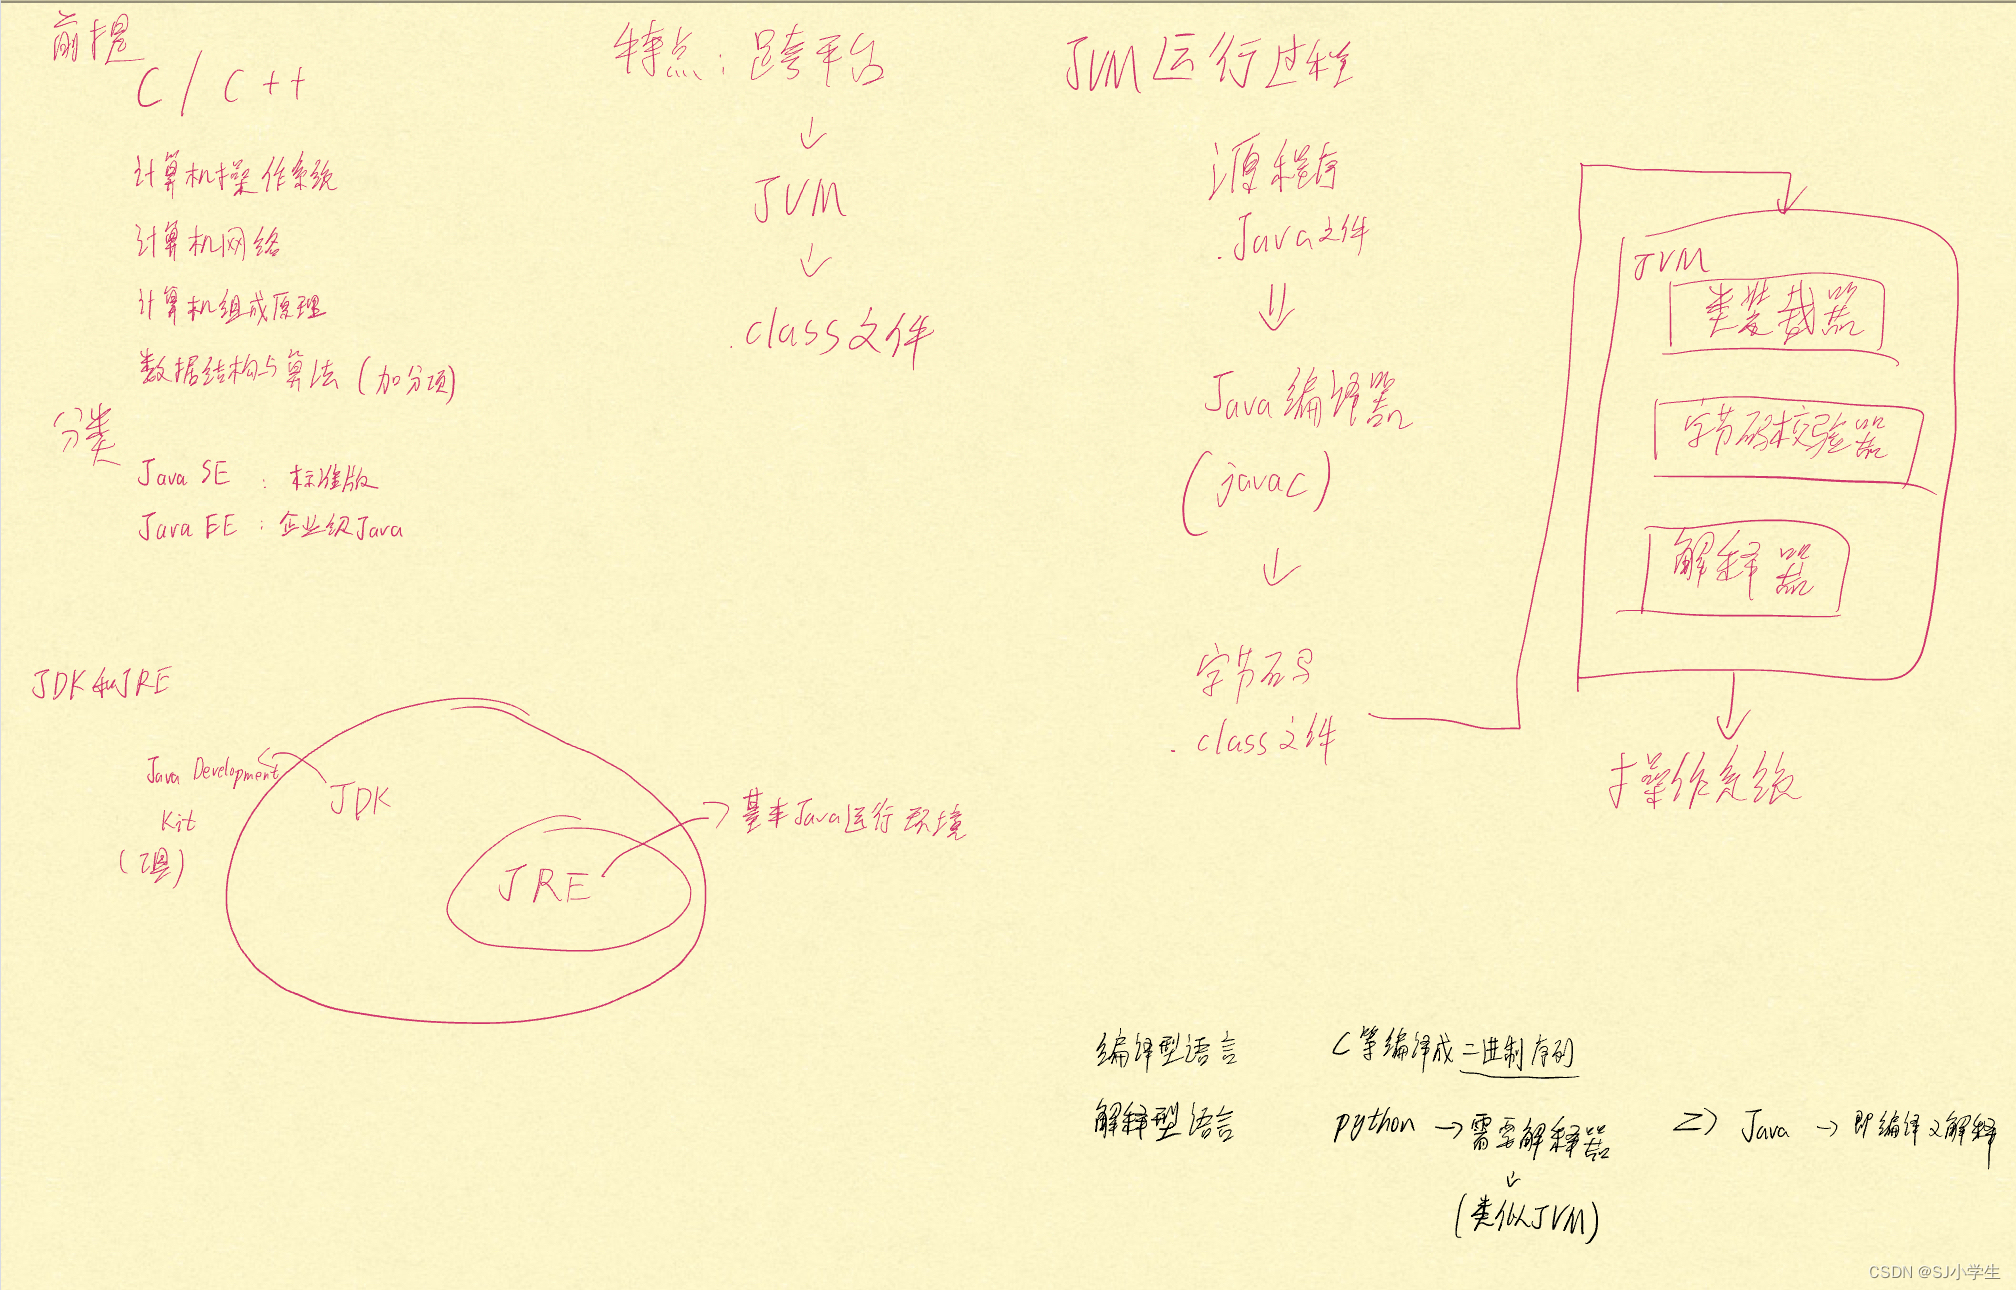 前提
C / C++
计算机操作系统
计算机网络
计算机组成原理
数据结构与算法 (加分项)
分类
Java SE : 标准版
Java EE : 企业级Java
特点: 跨平台
JVM
.class文件
JVM运行过程
源程序
.Java文件
Java编译器
(javac)
字节码
.class文件
JVM
类装载器
字节码校验器
解释器
操作系统
JDK和JRE
Java Development
Kit
(工具)
JDK
JRE
基本Java运行环境
编译型语言 C等编译成二进制序列
解释型语言 python → 需要解释器 => Java → 即编译又解释
(类似JVM)
CSDN @SJ小学生